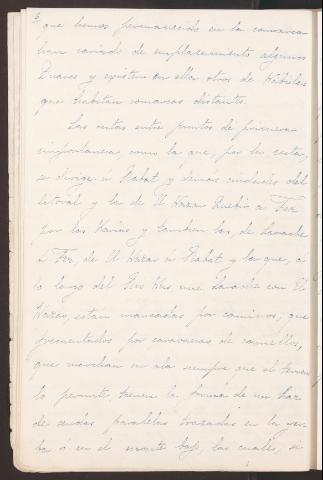 que hemos permanecido en la comarca
han variado de emplazamiento algunos
Duares y existen en ella otros de Kábilas
que habitan comarcas distantes.
Las rutas entre puntos de primera
importancia, como la que, por la costa,
se dirige á Rabat y demás ciudades del
litoral y la de El Kazar Quebir á Fez
por los y tambien las, de Larache
á Fez, de El Kazar á Rabat y la que, a
lo largo del une Larache con El
Kazar, estan marcadas por caminos, que
frecuentados por caravanas de camellos,
que marchan en ala siempre que el terreno
lo permite, tienen la forma de un haz
de sendas paralelas trazadas en la yer-
ba ó en el monte bajo, las cuales, si